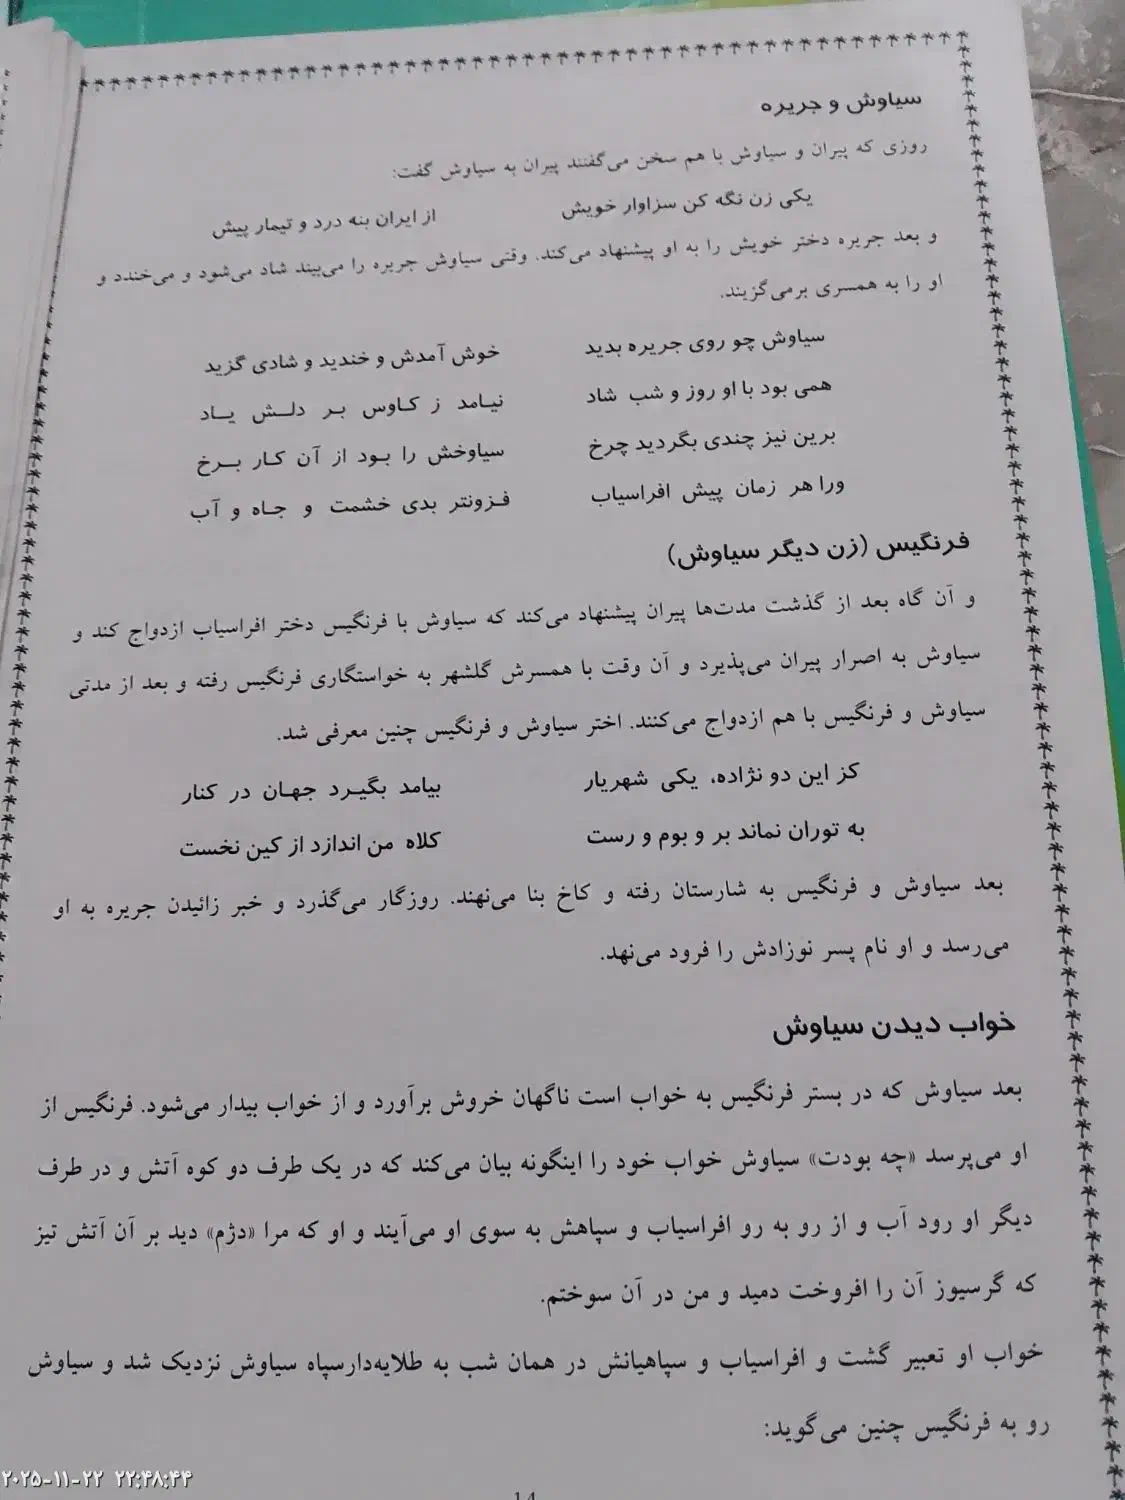 سیاوش و جریره
روزی که پیران و سیاوش با هم سخن می‌گفتند پیران به سیاوش گفت:
یکی زن نگه کن سزاوار خویش از ایران بنه درد و تیمار پیش
و بعد جریره دختر خویش را به او پیشنهاد می‌کند. وقتی سیاوش جریره را می‌بیند شاد می‌شود و می‌خندد و
او را به همسری برمی‌گزیند.
سیاوش چو روی جریره بدید خوش آمدش و خندید و شادی گزید
همی بود با او روز و شب شاد نیامد ز کاوس بر دلش یاد
برین نیز چندی بگردید چرخ سیاوخش را بود از آن کار برخ
ورا هر زمان پیش افراسیاب فزونتر بدی خشمت و جاه و آب
فرنگیس (زن دیگر سیاوش)
و آن گاه بعد از گذشت مدت‌ها پیران پیشنهاد می‌کند که سیاوش با فرنگیس دختر افراسیاب ازدواج کند و
سیاوش به اصرار پیران می‌پذیرد و آن وقت با همسرش گلشهر به خواستگاری فرنگیس رفته و بعد از مدتی
سیاوش و فرنگیس با هم ازدواج می‌کنند. اختر سیاوش و فرنگیس چنین معرفی شد.
کز این دو نژاده، یکی شهریار بیامد بگیرد جهان در کنار
به توران نماند بر و بوم و رست کلاه من اندازد از کین نخست
بعد سیاوش و فرنگیس به شارستان رفته و کاخ بنا می‌نهند. روزگار می‌گذرد و خبر زائیدن جریره به او
می‌رسد و او نام پسر نوزادش را فرود می‌نهد.
خواب دیدن سیاوش
بعد سیاوش که در بستر فرنگیس به خواب است ناگهان خروش برآورد و از خواب بیدار می‌شود. فرنگیس از
او می‌پرسد «چه بودت» سیاوش خواب خود را اینگونه بیان می‌کند که در یک طرف دو کوه آتش و در طرف
دیگر او رود آب و از رو به رو افراسیاب و سپاهش به سوی او می‌آیند و او که مرا «دژم» دید بر آن آتش تیز
که گرسیوز آن را افروخت دمید و من در آن سوختم.
خواب او تعبیر گشت و افراسیاب و سپاهیانش در همان شب به طلایه‌دارسپاه سیاوش نزدیک شد و سیاوش
رو به فرنگیس چنین می‌گوید:
۲۰۲۵-۱۱-۲۲ ۲۲:۴۸:۴۴